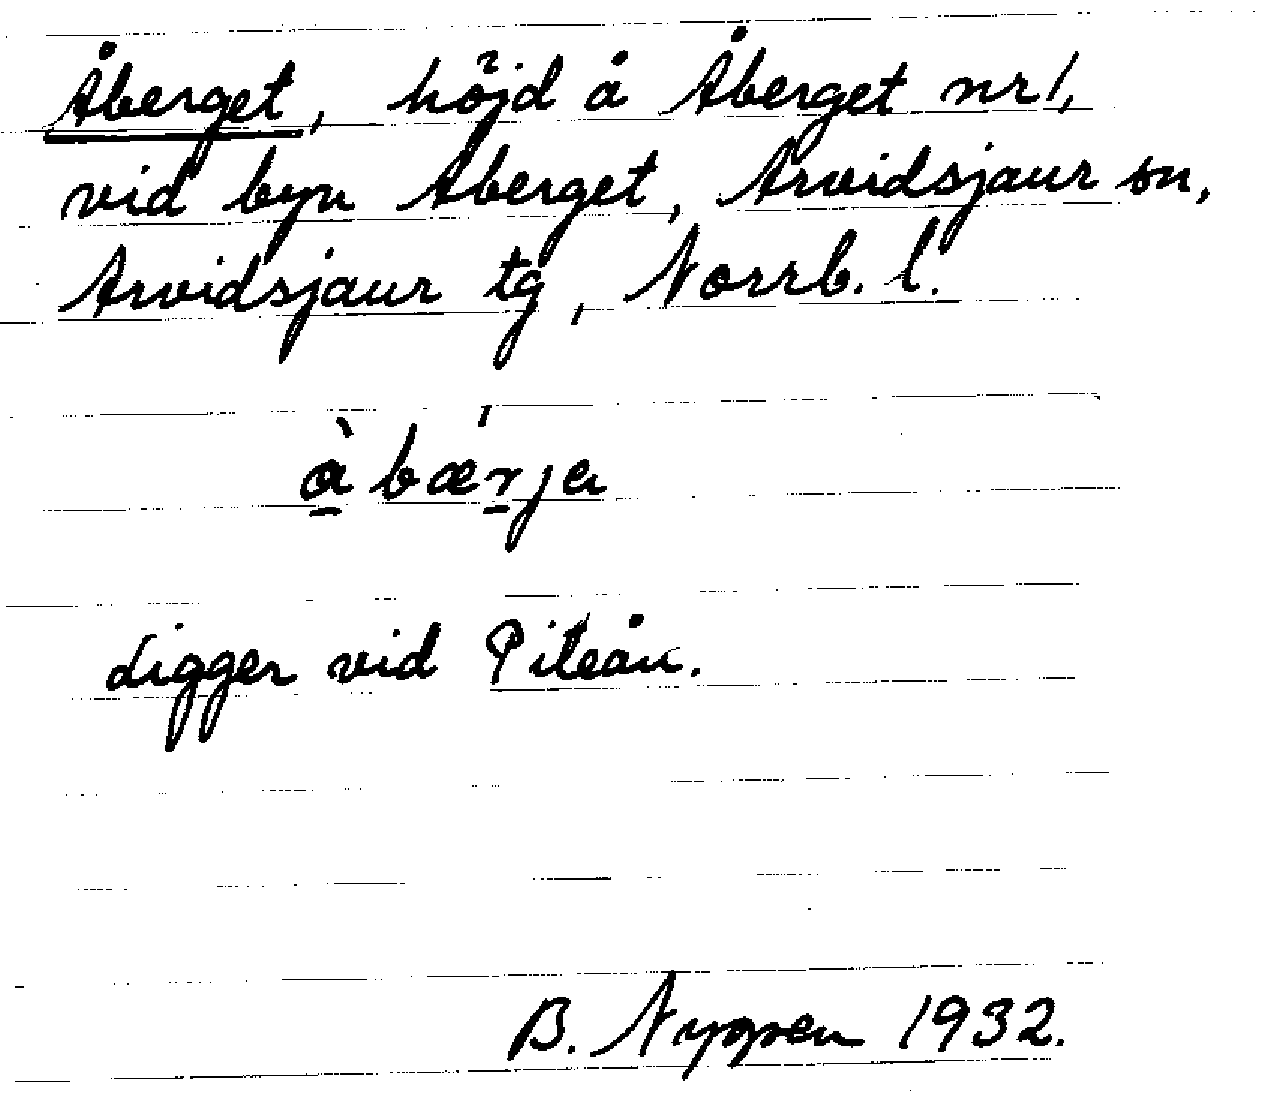 Åberget, höjd å Åberget nr 1,
vid byn Åberget, Arvidsjaur sn,
Arvidsjaur tg, Norrb. l.
å̀bær̀ja
Ligger vid Piteån.
B. Nygren 1932.